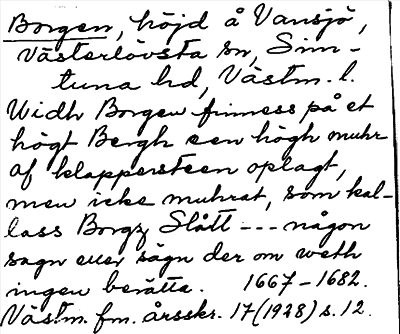 Borgen, höjd å Vansjö,
Västerlövsta sn, Sim-
tuna hd, Västm. l.
Widh Borgen finness på et
högt Bergh een högh muhr
af klappersteen oplagt,
men icke muhrat, som kal-
lass Borgz Slått --- någon
sagn eller sägn der om weth
ingen berätta. 1667-1682.
Västm. fm. årsskr. 17 (1928) s. 12.